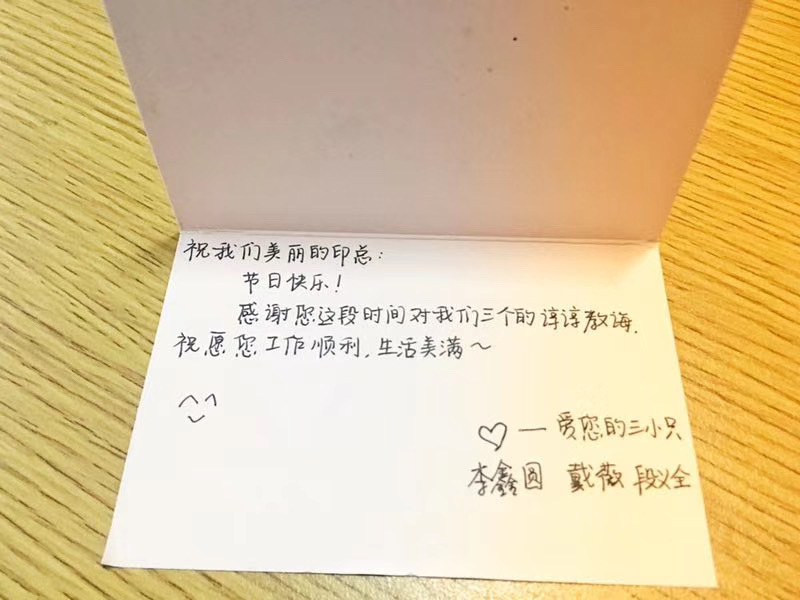 祝我们美丽的印总：
节日快乐！
感谢您这段时间对我们三个的谆谆教诲.
祝愿您工作顺利,生活美满～
♡—爱您的三小只
李鑫圆 戴薇 段义全